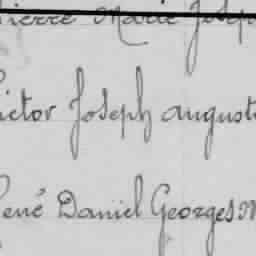 Pierre Marie Joseph
ictor Joseph august
René Daniel Georges M